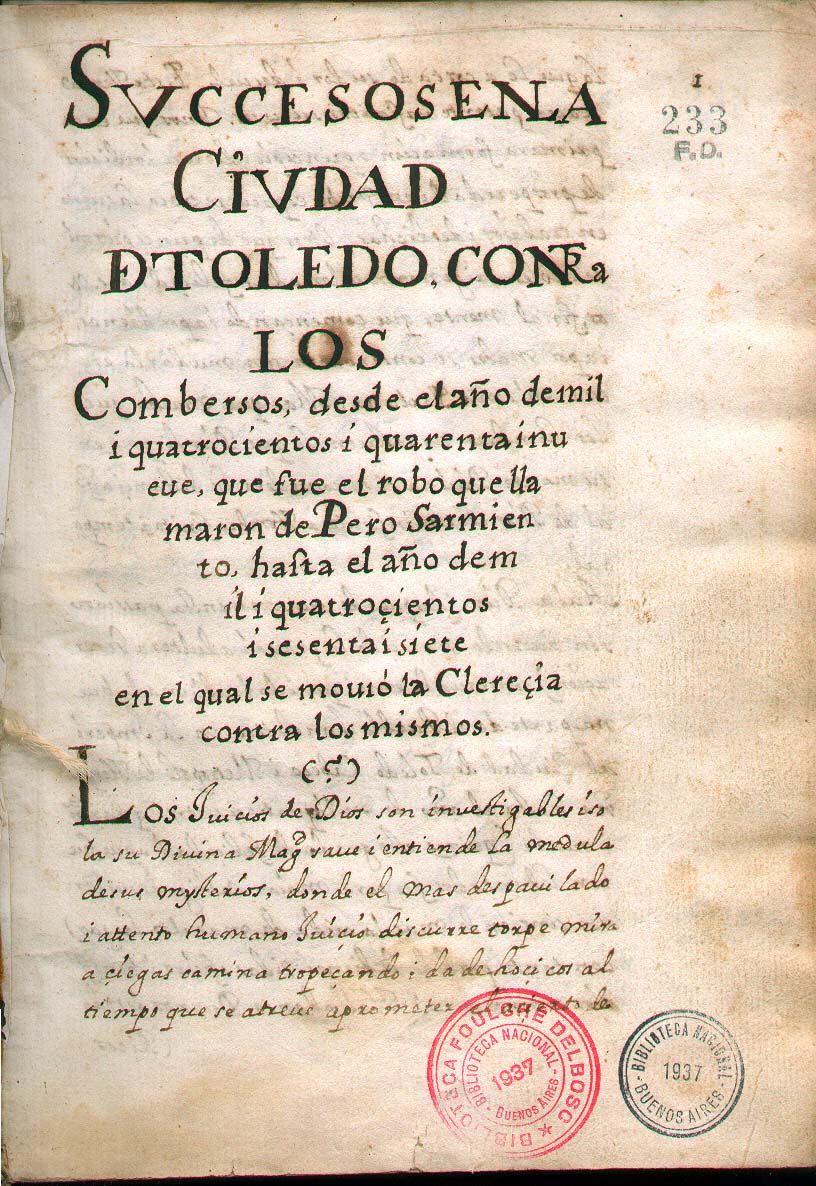 1
233
F.D.
SVCCESOS EN LA
CIVDAD
DTOLEDO, CONTRa
LOS
Combersos, desde el año de mil
i quatrocientos i quarenta i nu
eue, que fue el robo que lla
maron de Pero Sarmien
to, hasta el año de m
il i quatroçientos
i sesenta i siete
en el qual se mouió la Clereçia
contra los mismos.
LOS Juicios de Dios son investigables i so
la su Divina Magd save i entiende la medula
de sus mysterios, donde el mas despavilado
i attento humano Juicio discurre torpe mira
a çiegas camina tropeçando i da de hocicos al
tiempo que se atreue a prometer el acierto de
BIBLIOTECA FOULCHÉ DELBOSC
BIBLIOTECA NACIONAL
1937
BUENOS AIRES
BIBLIOTECA NACIONAL
1937
BUENOS AIRES